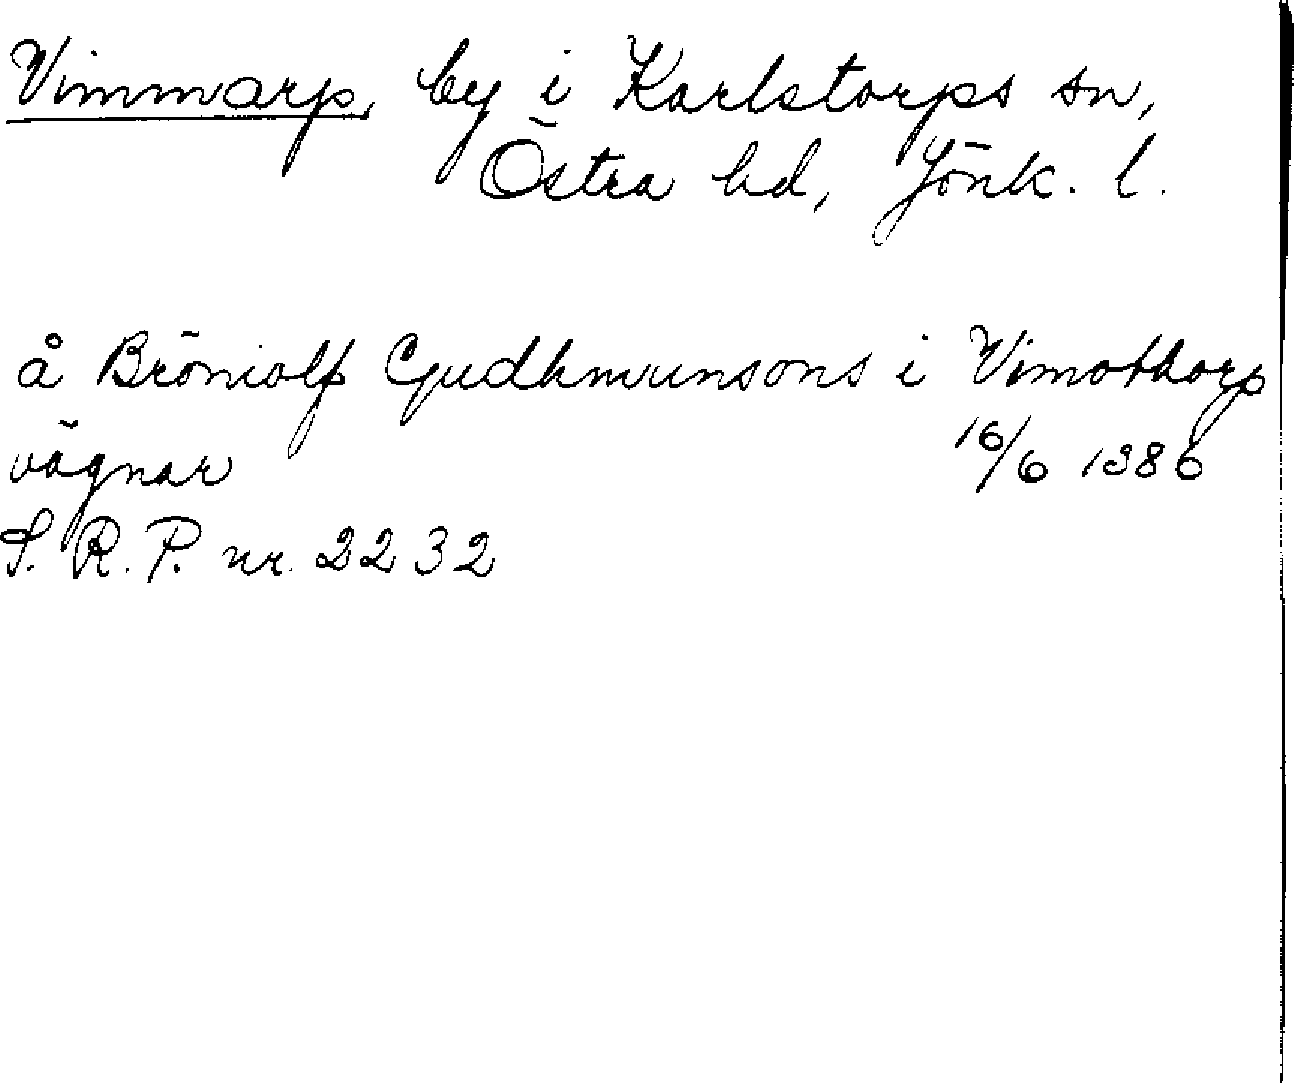 Vimmarp, by i Karlstorps sn,
Östra hd, Jönk. l.
å Bröniolf Gudhmunsons i Vimothorp
vägnar 16/6 1386
S. R. P. nr. 2232